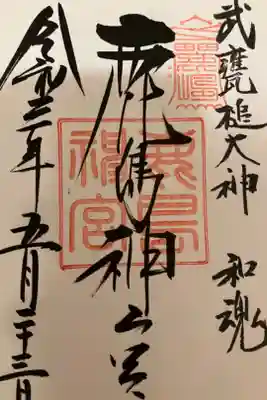 武甕槌大神 和魂
鹿島神宮
鹿島神宮
令和三年 五月二十三日